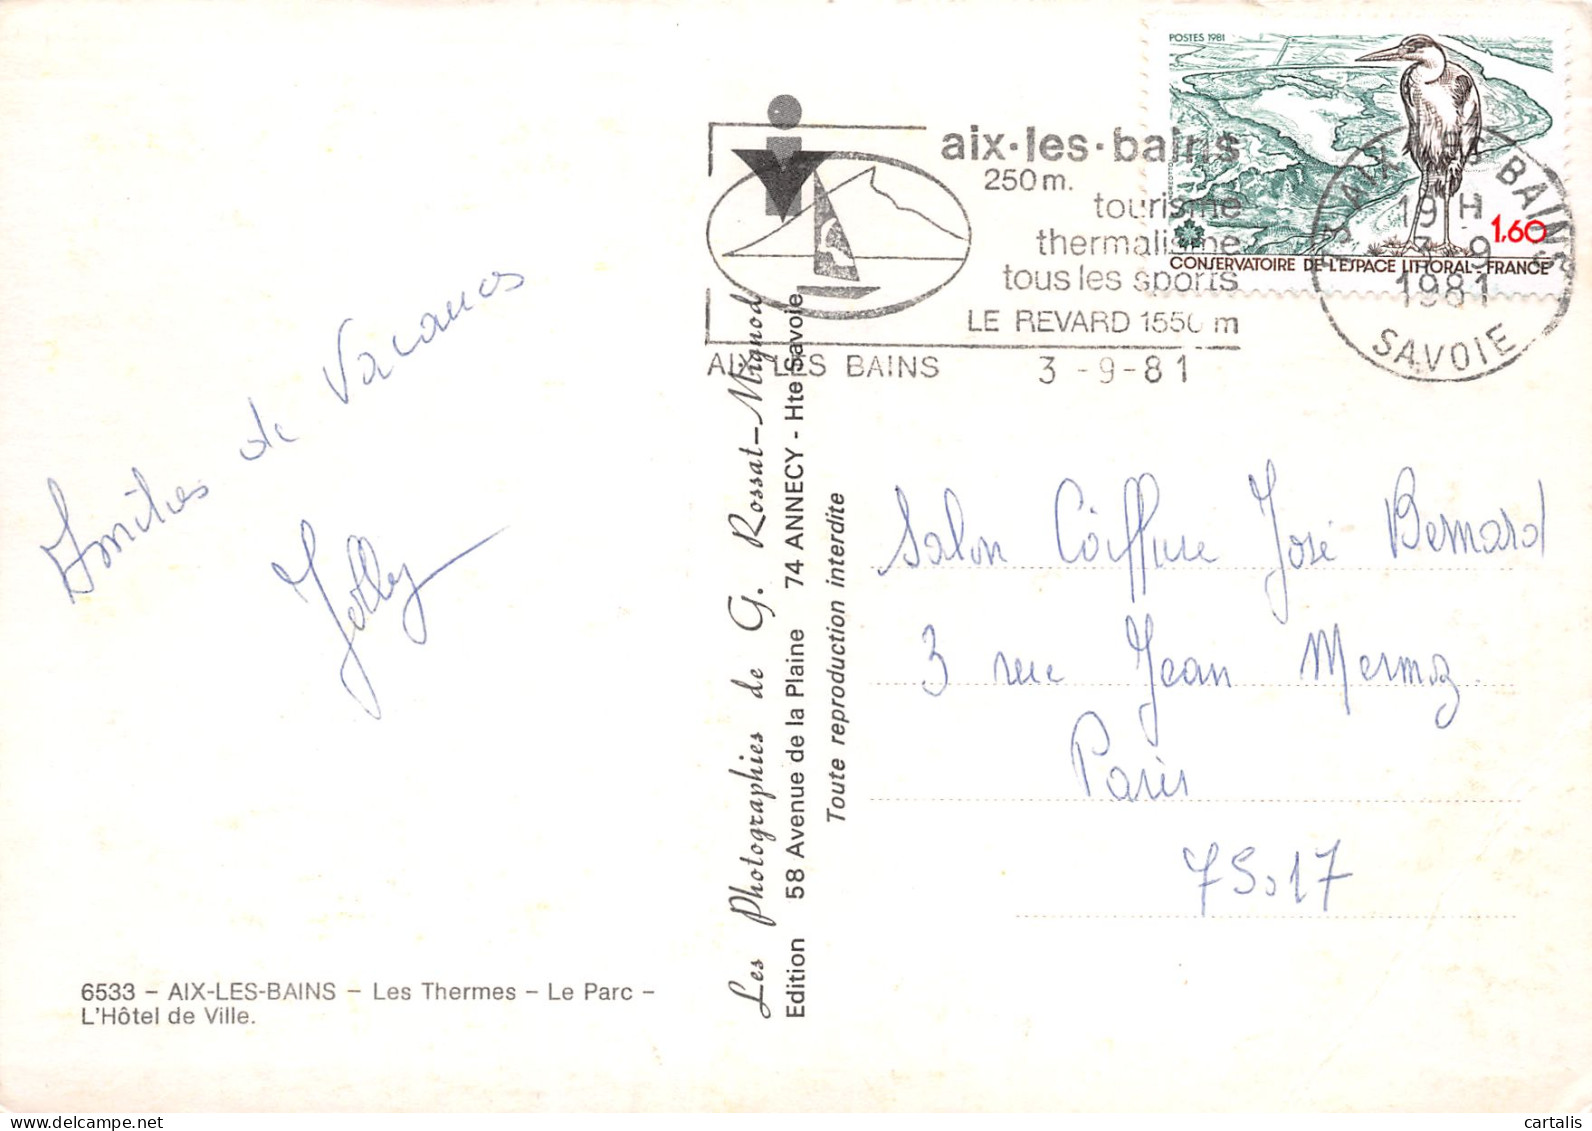 POSTES 1981
aix·les·bains
250 m.
tourisme
thermalisme
tous les sports
LE REVARD 1550 m
AIX LES BAINS 3-9-81
73 AIX LES BAINS
19 H
3-9
1981
SAVOIE
1,60
CONSERVATOIRE DE L'ESPACE LITTORAL - FRANCE
Amitiés de Vacances
Jolly
6533 – AIX-LES-BAINS – Les Thermes – Le Parc –
L'Hôtel de Ville.
Les Photographies de G. Rossat-Mignod
Edition 58 Avenue de la Plaine 74 ANNECY - Hte Savoie
Toute reproduction interdite
Salon Coiffure José Bernard
3 rue Jean Mermoz
Paris
75.17
cartalis